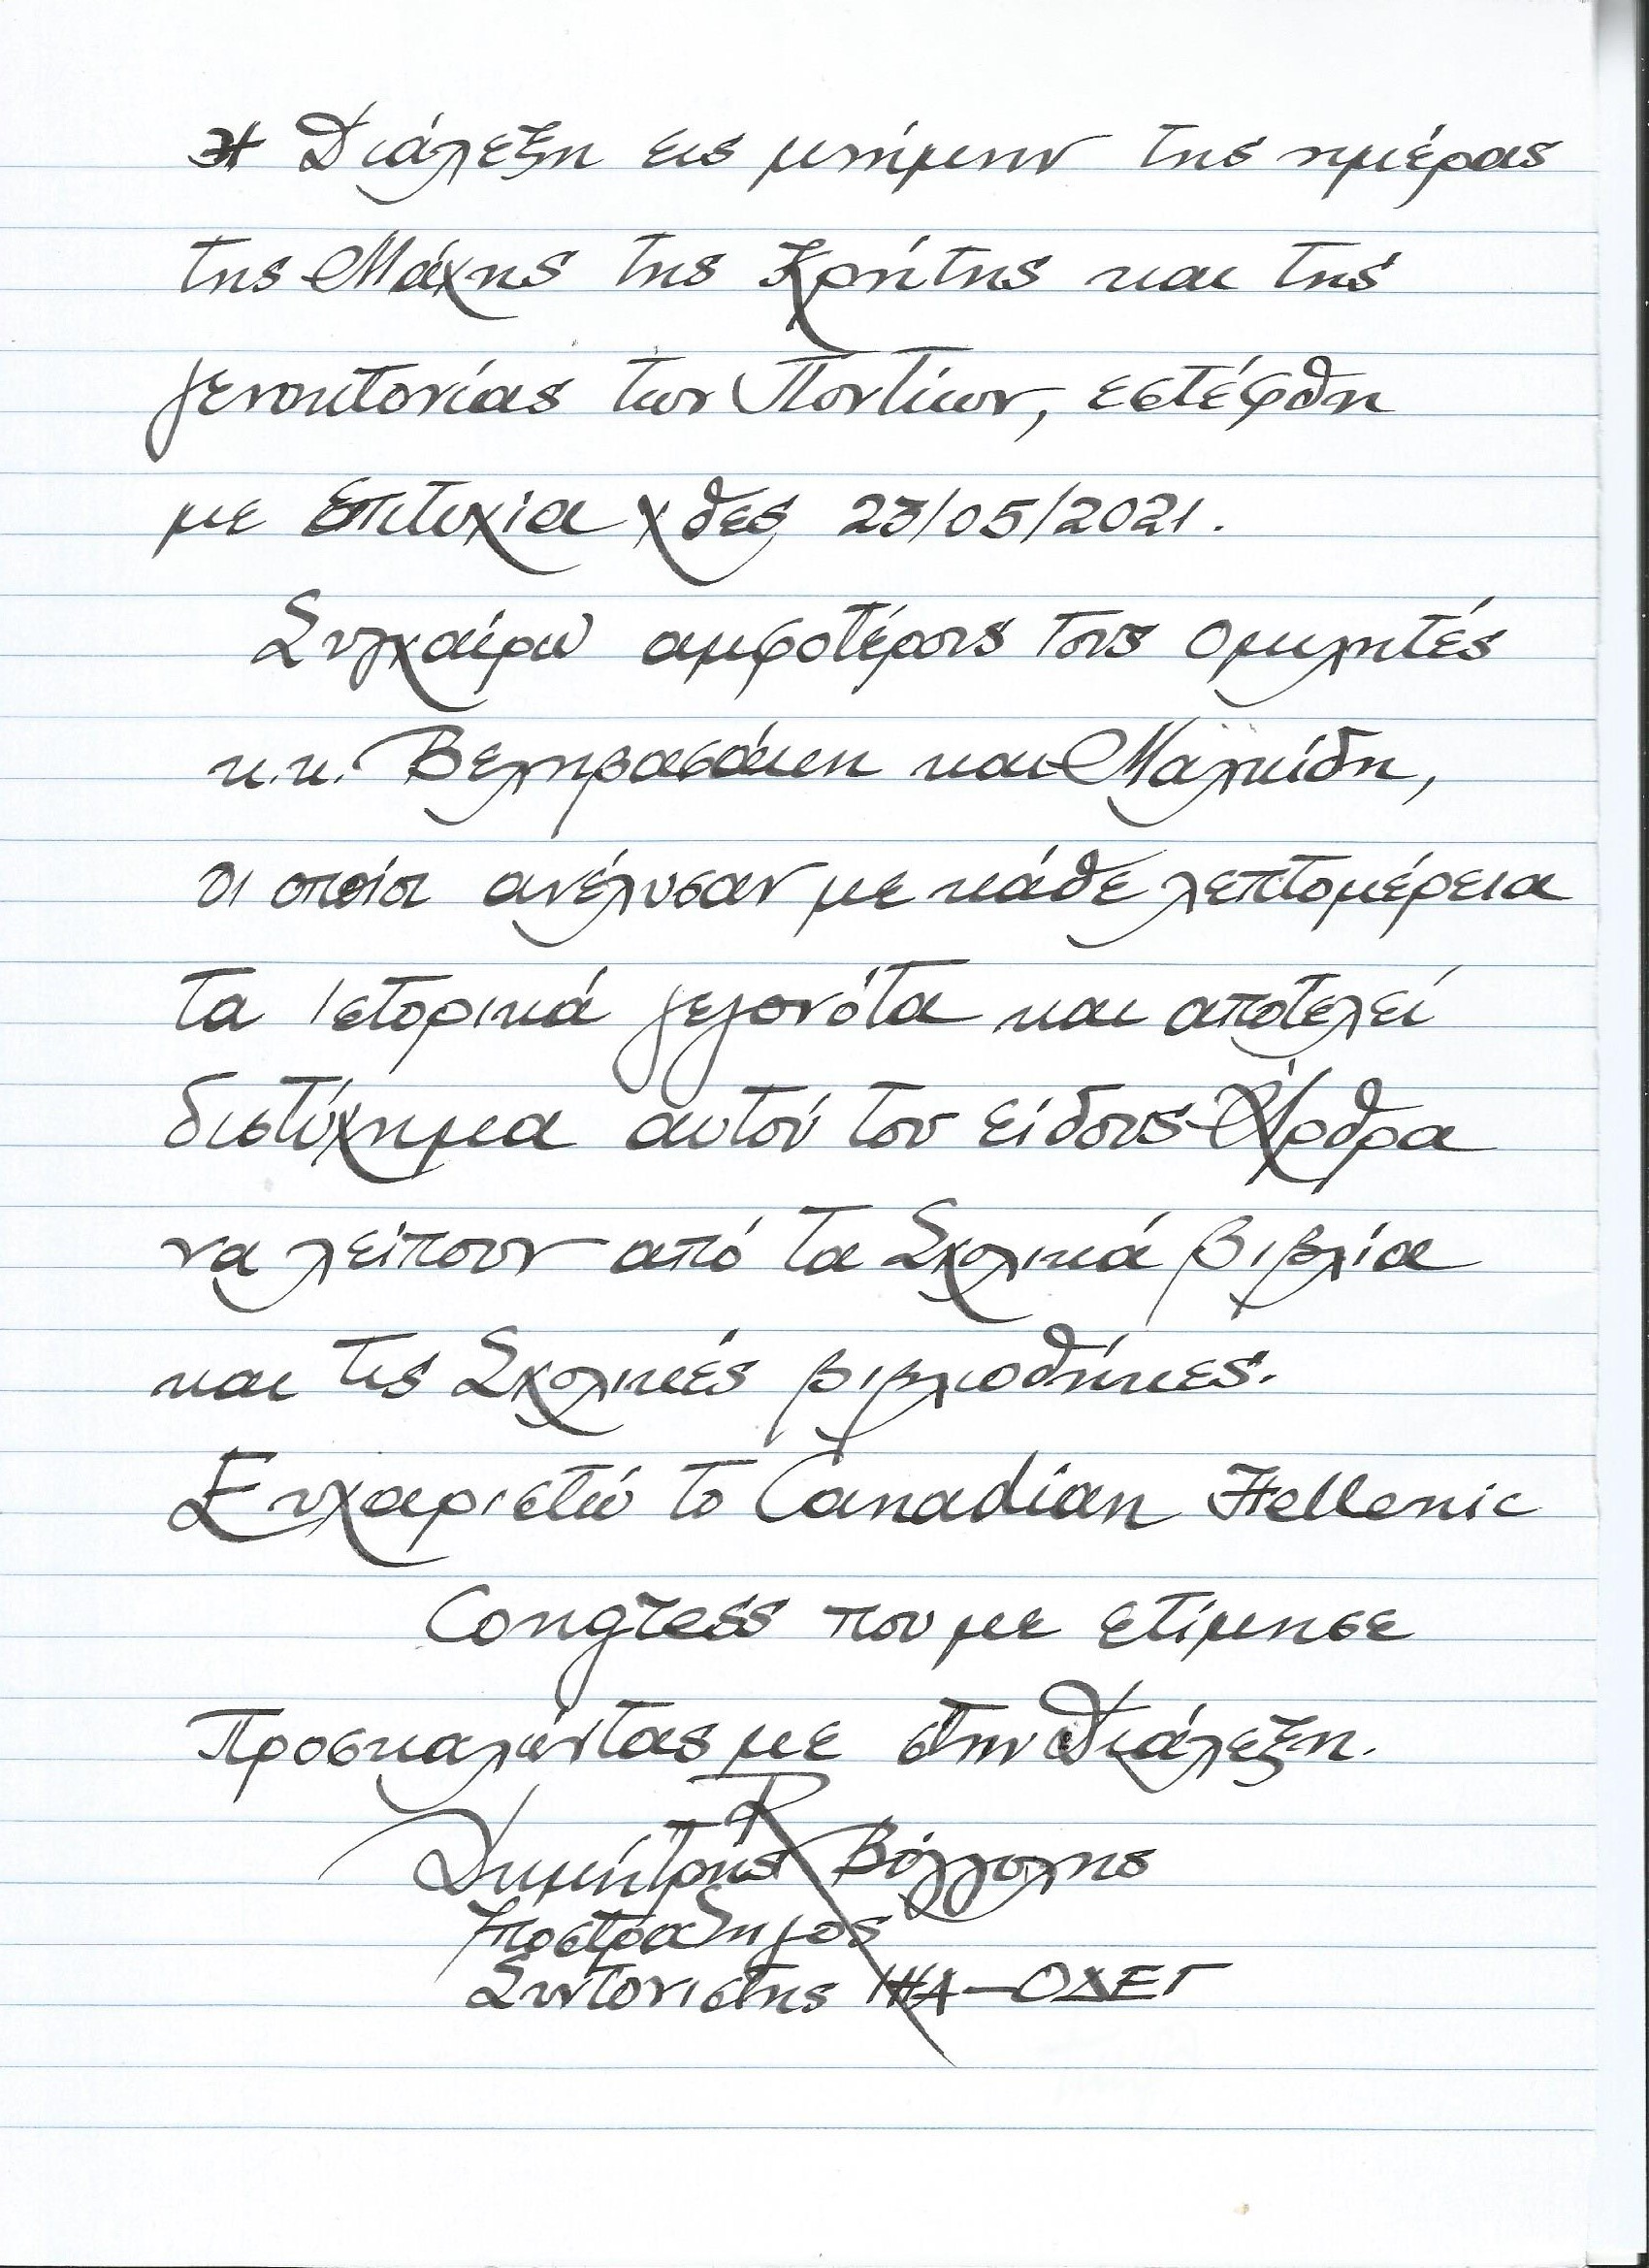 Η Διάλεξη εις μνήμην της ημέρας
της Μάχης της Κρήτης και της
γενοκτονίας των Ποντίων, εστέφθη
με επιτυχία χθες 23/05/2021.
Συγχαίρω αμφοτέρους τους ομιλητές
κ.κ. Βεληβασάκη και Μαλκίδη,
οι οποίοι ανέλυσαν με κάθε λεπτομέρεια
τα Ιστορικά γεγονότα και αποτελεί
δυστύχημα αυτού του είδους Άρθρα
να λείπουν από τα Σχολικά βιβλία
και τις Σχολικές βιβλιοθήκες.
Ευχαριστώ το Canadian Hellenic
Congress που με ετίμησε
Προσκαλώντας με στην Διάλεξη.
Δημήτρης Βόγγολης
Υποστράτηγος
Συντονιστής ΗΠΑ-ΟΔΕΓ